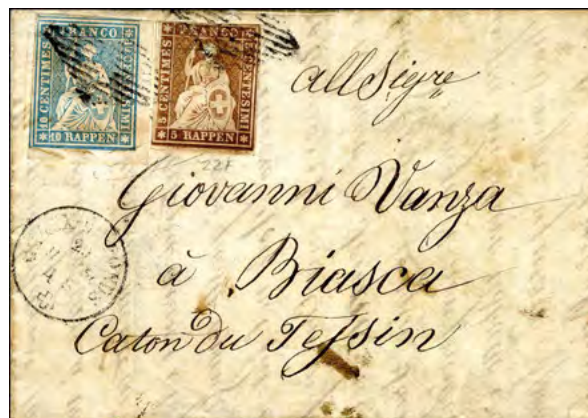 FRANCO
10 CENTIMES
10 CENTESIMI
10 RAPPEN
FRANCO
5 CENTIMES
5 CENTESIMI
5 RAPPEN
all Sigre
22F
Giovanni Vanza
à Biasca
Caton du Tessin